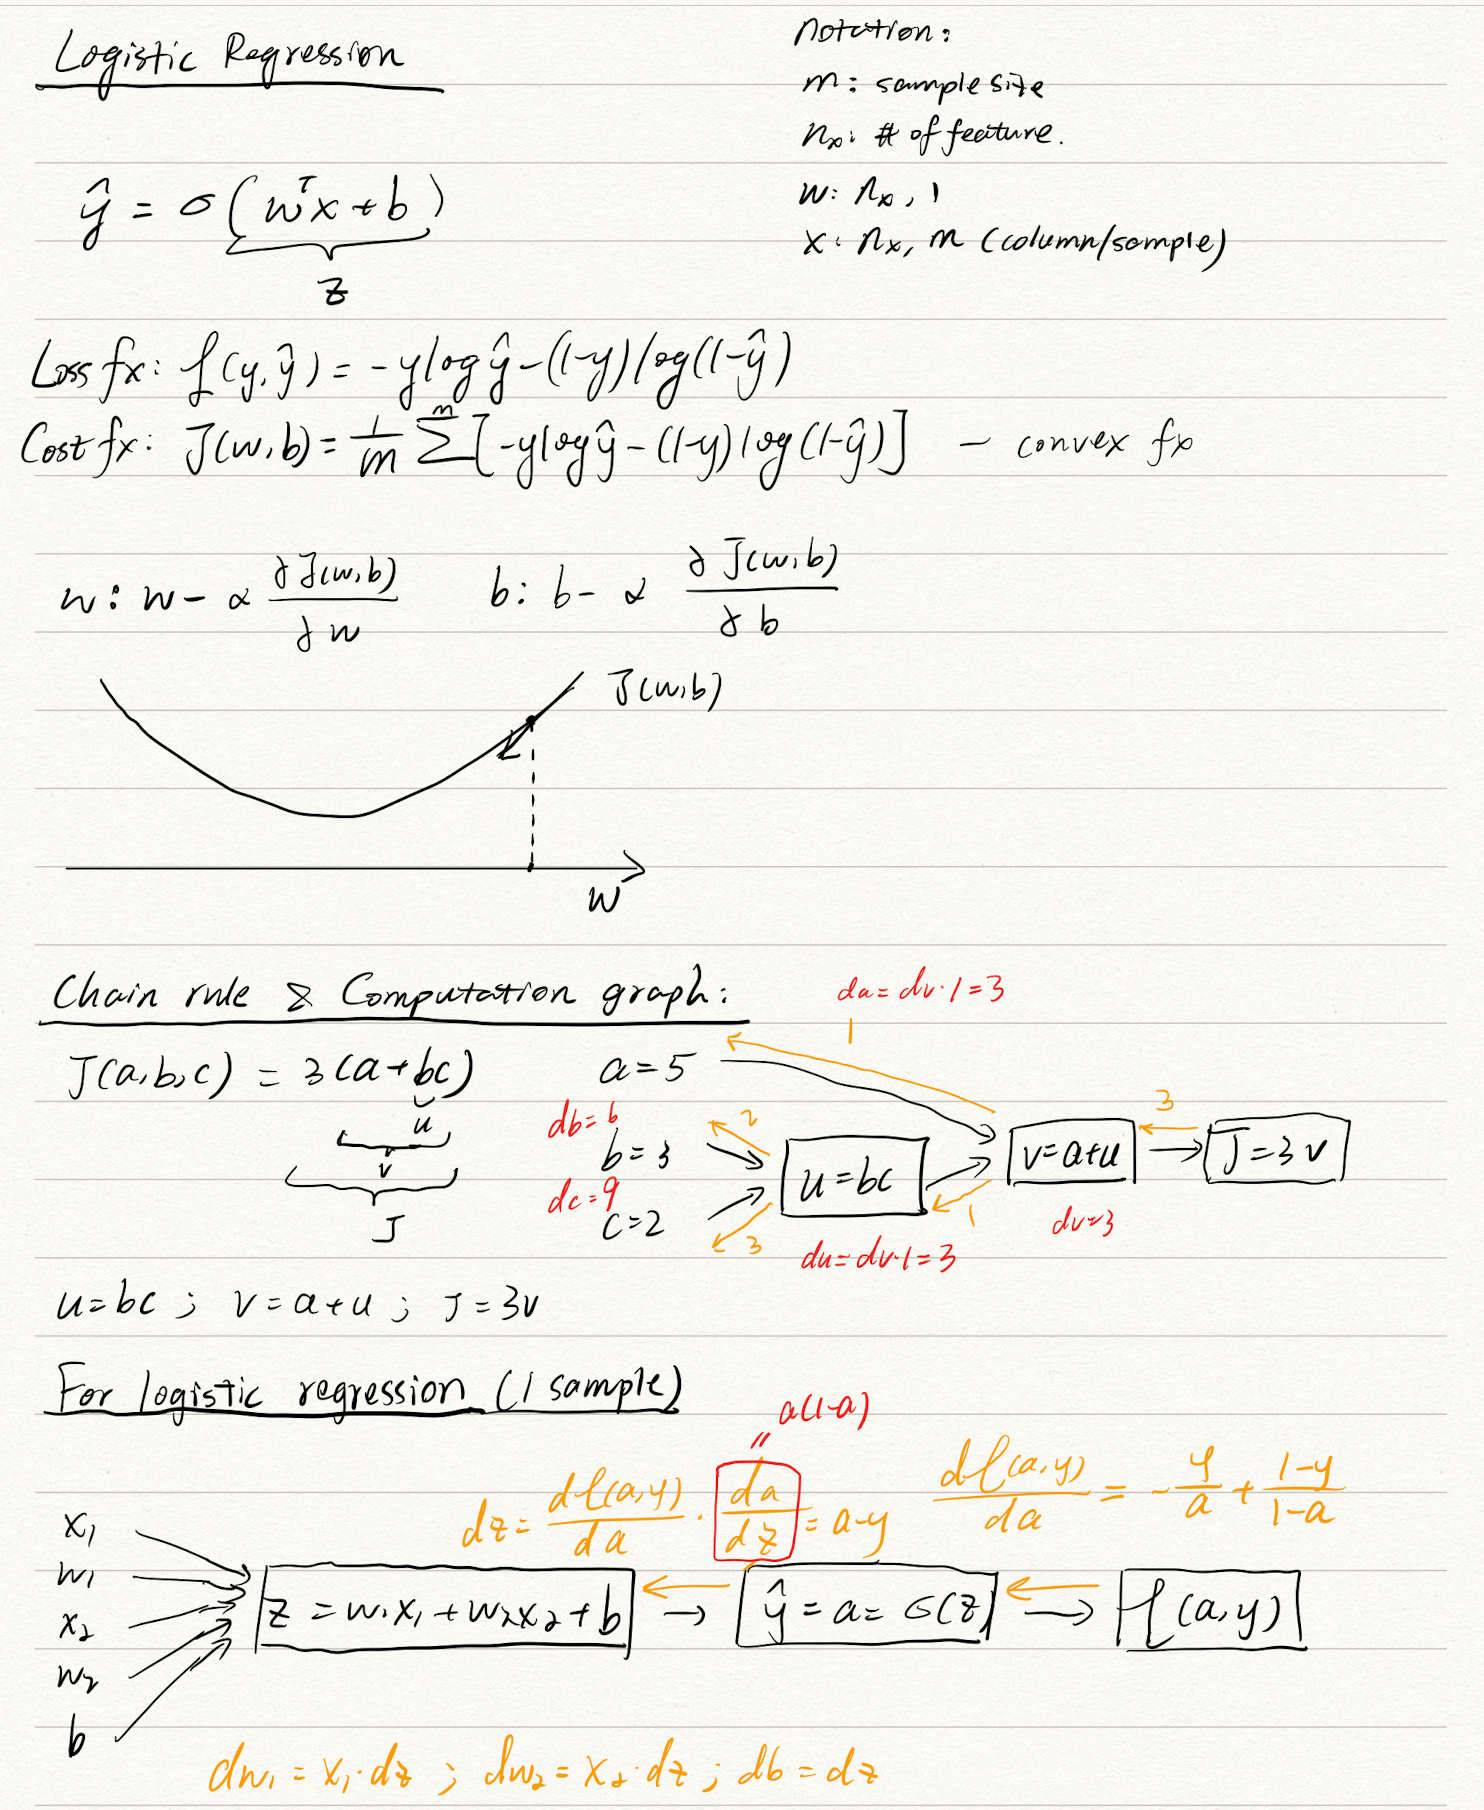 Logistic Regression
Notation:
m: sample size
nₓ: # of feature.
w: nₓ, 1
X: nₓ, m (column/sample)
ŷ = σ(wᵀx + b)
z
Loss fx: ℓ(y, ŷ) = -y log ŷ - (1-y) log(1-ŷ)
Cost fx: J(w, b) = 1/m Σᵐ [-y log ŷ - (1-y) log(1-ŷ)] - convex fx
w: w - α ∂J(w,b)/∂w b: b - α ∂J(w,b)/∂b
J(w,b)
w
Chain rule & Computation graph:
da = dv·1 = 3
1
J(a,b,c) = 3(a+bc)
u
v
J
a = 5
db = 6
2
b = 3
dc = 9
c = 2
3
u = bc
du = dv·1 = 3
1
v = a+u
dv = 3
3
J = 3v
u = bc ; v = a+u ; J = 3v
For logistic regression (1 sample)
a(1-a)
=
dz = dℓ(a,y)/da · da/dz = a-y dℓ(a,y)/da = -y/a + (1-y)/(1-a)
x₁
w₁
x₂
w₂
b
z = w₁x₁ + w₂x₂ + b → ŷ = a = σ(z) → ℓ(a,y)
dw₁ = x₁·dz ; dw₂ = x₂·dz ; db = dz